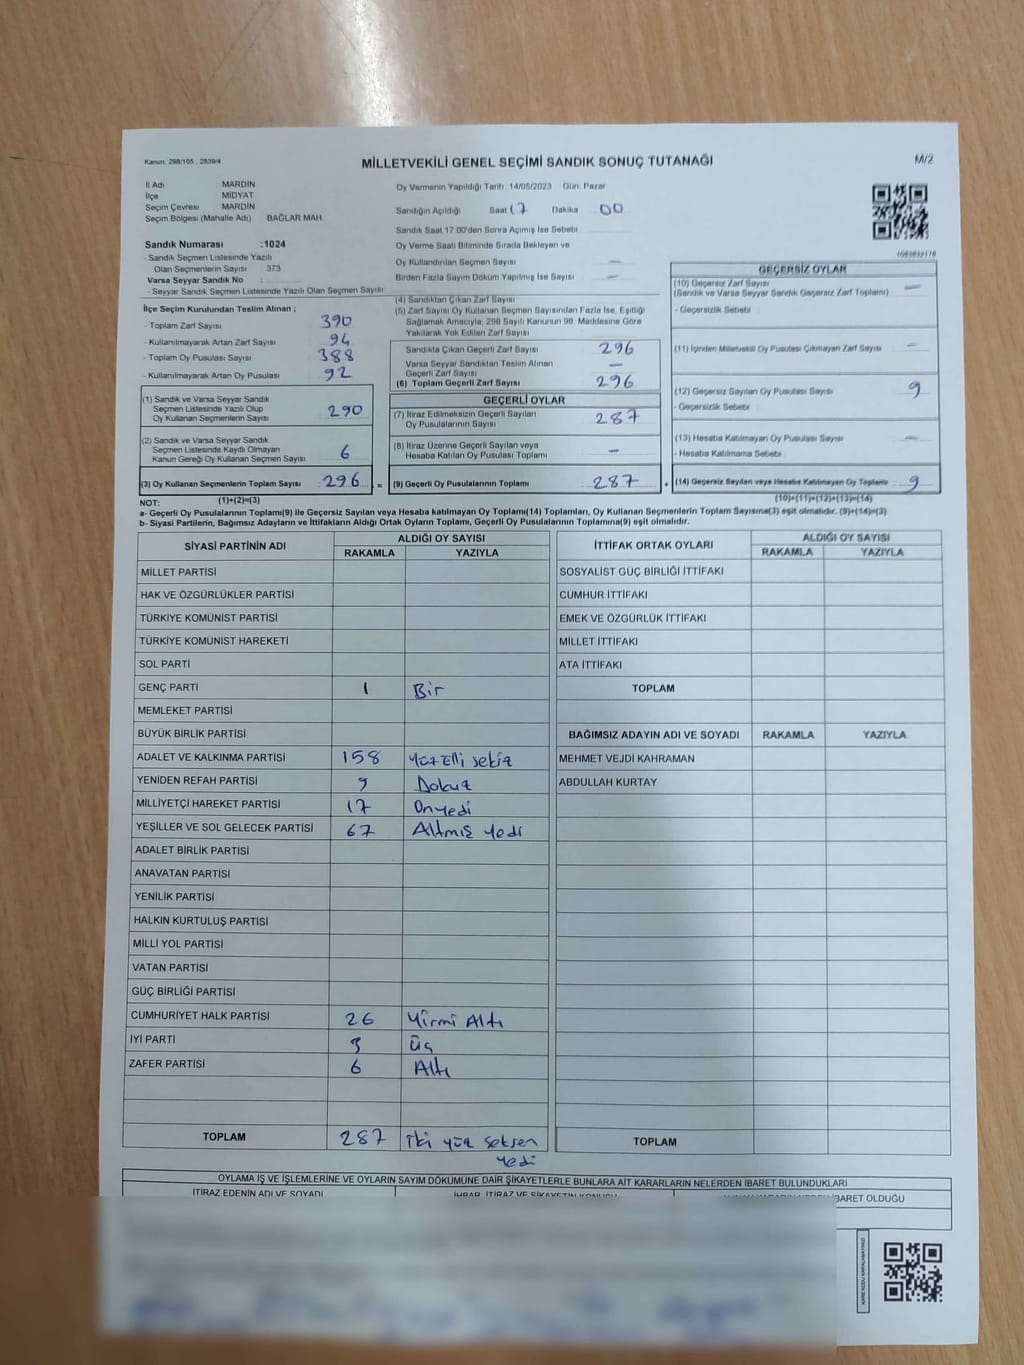 Kanun, 298/105 , 2839/4
MİLLETVEKİLİ GENEL SEÇİMİ SANDIK SONUÇ TUTANAĞI
M/2
İl Adı MARDİN
İlçe MİDYAT
Seçim Çevresi MARDİN
Seçim Bölgesi (Mahalle Adı) BAĞLAR MAH.
Sandık Numarası :1024
- Sandık Seçmen Listesinde Yazılı
Olan Seçmenlerin Sayısı 373
Varsa Seyyar Sandık No :
- Seyyar Sandık Seçmen Listesinde Yazılı Olan Seçmen Sayısı
İlçe Seçim Kurulundan Teslim Alınan ;
- Toplam Zarf Sayısı 390
- Kullanılmayarak Artan Zarf Sayısı 94
- Toplam Oy Pusulası Sayısı 388
- Kullanılmayarak Artan Oy Pusulası 92
(1) Sandık ve Varsa Seyyar Sandık
Seçmen Listesinde Yazılı Olup
Oy Kullanan Seçmenlerin Sayısı 290
(2) Sandık ve Varsa Seyyar Sandık
Seçmen Listesinde Kayıtlı Olmayan
Kanun Gereği Oy Kullanan Seçmen Sayısı 6
(3) Oy Kullanan Seçmenlerin Toplam Sayısı 296 =
(1)+(2)=(3)
Oy Vermenin Yapıldığı Tarih 14/05/2023 Gün Pazar
Sandığın Açıldığı Saat 17 Dakika 00
Sandık Saat 17.00'den Sonra Açımış İse Sebebi
Oy Verme Saati Bitiminde Sırada Bekleyen ve
Oy Kullandırılan Seçmen Sayısı —
Birden Fazla Sayım Döküm Yapılmış İse Sayısı —
(4) Sandıktan Çıkan Zarf Sayısı
(5) Zarf Sayısı Oy Kullanan Seçmen Sayısından Fazla İse, Eşitliği
Sağlamak Amacıyla, 298 Sayılı Kanunun 98. Maddesine Göre
Yakılarak Yok Edilen Zarf Sayısı
Sandıkta Çıkan Geçerli Zarf Sayısı 296
Varsa Seyyar Sandıktan Teslim Alınan
Geçerli Zarf Sayısı —
(6) Toplam Geçerli Zarf Sayısı 296
GEÇERLİ OYLAR
(7) İtiraz Edilmeksizin Geçerli Sayılan
Oy Pusulalarının Sayısı 287
(8) İtiraz Üzerine Geçerli Sayılan veya
Hesaba Katılan Oy Pusulası Toplamı —
(9) Geçerli Oy Pusulalarının Toplamı 287 +
1083832178
GEÇERSİZ OYLAR
(10) Geçersiz Zarf Sayısı —
(Sandık ve Varsa Seyyar Sandık Geçersiz Zarf Toplamı)
- Geçersizlik Sebebi
(11) İçinden Milletvekili Oy Pusulası Çıkmayan Zarf Sayısı —
(12) Geçersiz Sayılan Oy Pusulası Sayısı 9
- Geçersizlik Sebebi
(13) Hesaba Katılmayan Oy Pusulası Sayısı —
- Hesaba Katılmama Sebebi
(14) Geçersiz Sayılan veya Hesaba Katılmayan Oy Toplamı 9
(10)+(11)+(12)+(13)=(14)
NOT:
a- Geçerli Oy Pusulalarının Toplamı(9) ile Geçersiz Sayılan veya Hesaba katılmayan Oy Toplamı(14) Toplamları, Oy Kullanan Seçmenlerin Toplam Sayısına(3) eşit olmalıdır. (9)+(14)=(3)
b- Siyasi Partilerin, Bağımsız Adayların ve İttifakların Aldığı Ortak Oyların Toplamı, Geçerli Oy Pusulalarının Toplamına(9) eşit olmalıdır.
SİYASİ PARTİNİN ADI ALDIĞI OY SAYISI
RAKAMLA YAZIYLA
MİLLET PARTİSİ
HAK VE ÖZGÜRLÜKLER PARTİSİ
TÜRKİYE KOMÜNİST PARTİSİ
TÜRKİYE KOMÜNİST HAREKETİ
SOL PARTİ
GENÇ PARTİ 1 Bir
MEMLEKET PARTİSİ
BÜYÜK BİRLİK PARTİSİ
ADALET VE KALKINMA PARTİSİ 158 Yüz Elli sekiz
YENİDEN REFAH PARTİSİ 9 Dokuz
MİLLİYETÇİ HAREKET PARTİSİ 17 Onyedi
YEŞİLLER VE SOL GELECEK PARTİSİ 67 Altmış Yedi
ADALET BİRLİK PARTİSİ
ANAVATAN PARTİSİ
YENİLİK PARTİSİ
HALKIN KURTULUŞ PARTİSİ
MİLLİ YOL PARTİSİ
VATAN PARTİSİ
GÜÇ BİRLİĞİ PARTİSİ
CUMHURİYET HALK PARTİSİ 26 Yirmi Altı
İYİ PARTİ 3 Üç
ZAFER PARTİSİ 6 Altı
TOPLAM 287 İki yüz seksen
yedi
İTTİFAK ORTAK OYLARI ALDIĞI OY SAYISI
RAKAMLA YAZIYLA
SOSYALİST GÜÇ BİRLİĞİ İTTİFAKI
CUMHUR İTTİFAKI
EMEK VE ÖZGÜRLÜK İTTİFAKI
MİLLET İTTİFAKI
ATA İTTİFAKI
TOPLAM
BAĞIMSIZ ADAYIN ADI VE SOYADI RAKAMLA YAZIYLA
MEHMET VEJDİ KAHRAMAN
ABDULLAH KURTAY
TOPLAM
OYLAMA İŞ VE İŞLEMLERİNE VE OYLARIN SAYIM DÖKÜMÜNE DAİR ŞİKAYETLERLE BUNLARA AİT KARARLARIN NELERDEN İBARET BULUNDUKLARI
İTİRAZ EDENİN ADI VE SOYADI İHBAR, İTİRAZ VE ŞİKAYETİN KONUSU İBARET OLDUĞU
KARE KODU KARALAMAYINIZ!